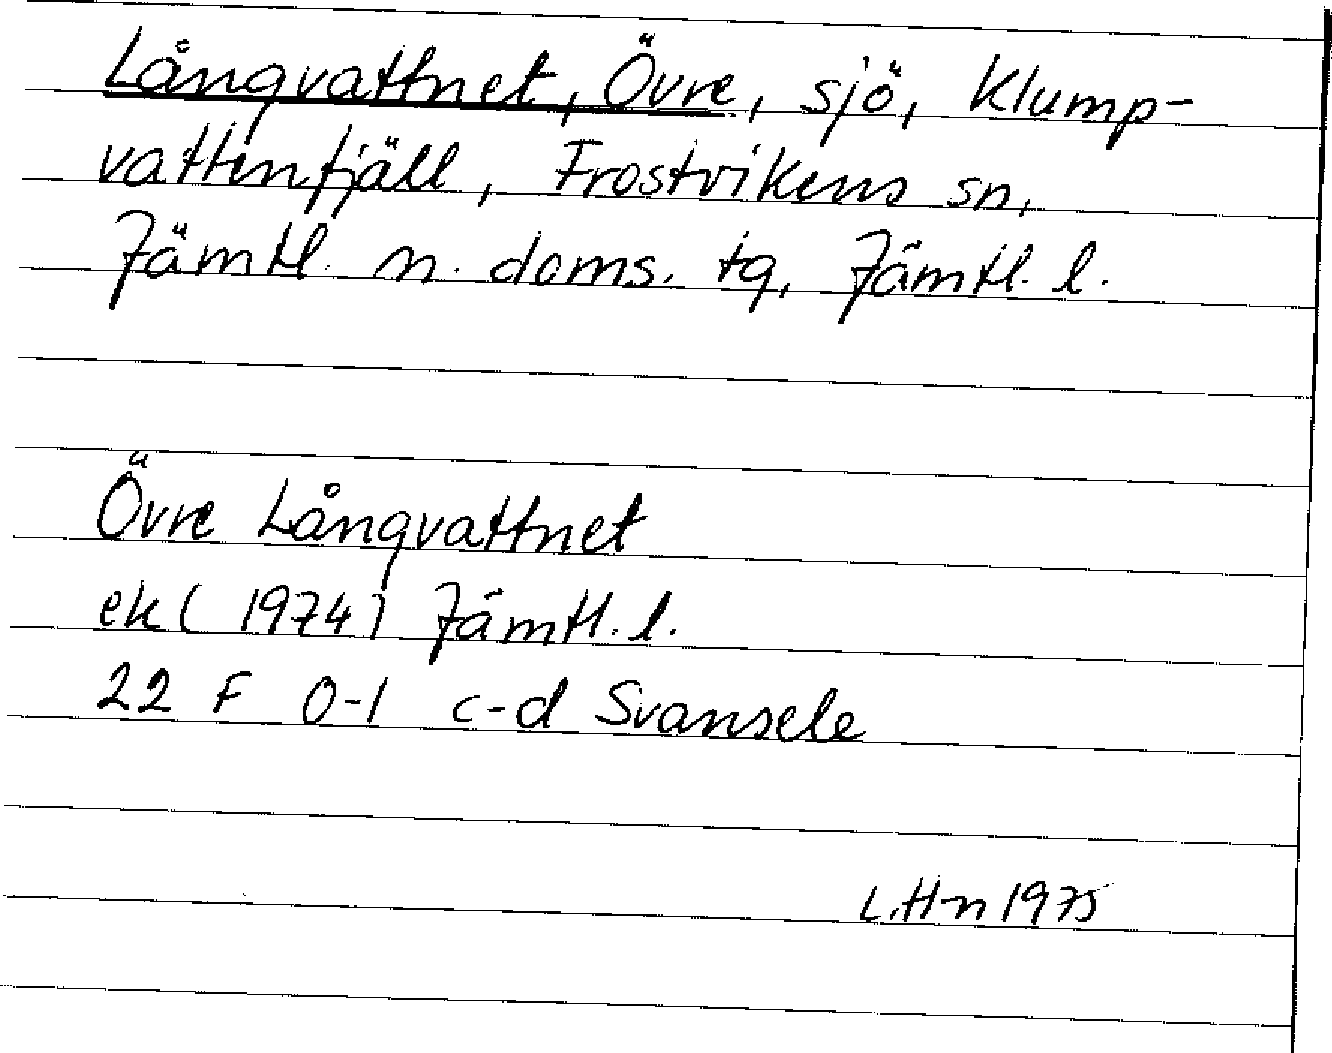 Långvattnet, Övre, sjö, Klump-
vattenfjäll, Frostvikens sn,
Jämtl. n. doms. tg, Jämtl. l.
Övre Långvattnet
ek (1974) Jämtl. l.
22 F 0-1 c-d Svansele
L.H-n 1975